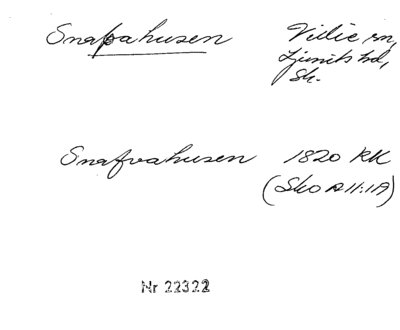 Snapahusen Villie sn,
Ljunits hd,
Sk.
Snafvahusen 1820 RK
(Sko A II:1A)
Nr 22322